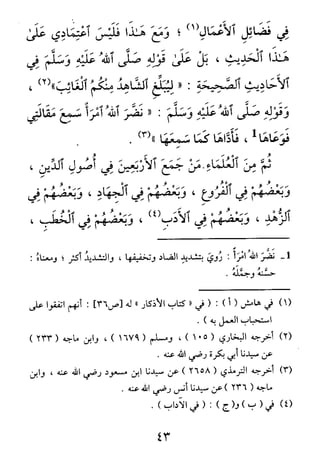 فِي فَضَائِلِ الأَعْمَالِ(١) ؛ وَمَعَ هَذَا فَلَيْسَ اعْتِمَادِي عَلَىٰ
هَذَا الْحَدِيثِ ، بَلْ عَلَىٰ قَوْلِهِ صَلَّى اللهُ عَلَيْهِ وَسَلَّمَ فِي
الأَحَادِيثِ الصَّحِيحَةِ : « لِيُبَلِّغِ الشَّاهِدُ مِنْكُمُ الْغَائِبَ »(٢) ،
وَقَوْلِهِ صَلَّى اللهُ عَلَيْهِ وَسَلَّمَ : « نَضَّرَ اللهُ امْرَأً سَمِعَ مَقَالَتِي
فَوَعَاهَا 1 ، فَأَدَّاهَا كَمَا سَمِعَهَا »(٣) .
ثُمَّ مِنَ الْعُلَمَاءِ مَنْ جَمَعَ الأَرْبَعِينَ فِي أُصُولِ الدِّينِ ،
وَبَعْضُهُمْ فِي الْفُرُوعِ ، وَبَعْضُهُمْ فِي الْجِهَادِ ، وَبَعْضُهُمْ فِي
الزُّهْدِ ، وَبَعْضُهُمْ فِي الأَدَبِ(٤) ، وَبَعْضُهُمْ فِي الْخُطَبِ ،
1 ـ نَضَّرَ اللهُ امْرَأً : رُوِيَ بتشديد الضاد وتخفيفها ، والتشديدُ أكثر ؛ ومعناهُ :
حسَّنهُ وجمَّلَهُ .
(١) في هامش ( أ ) : ( في « كتاب الأذكار » له [ص٣٦] : أنهم اتفقوا على
استحباب العمل به ) .
(٢) أخرجه البخاري ( ١٠٥ ) ، ومسلم ( ١٦٧٩ ) ، وابن ماجه ( ٢٣٣ )
عن سيدنا أبي بكرة رضي الله عنه .
(٣) أخرجه الترمذي ( ٢٦٥٨ ) عن سيدنا ابن مسعود رضي الله عنه ، وابن
ماجه ( ٢٣٦ ) عن سيدنا أنس رضي الله عنه .
(٤) في ( ب ) و( ج ) : ( في الآداب ) .
٤٣